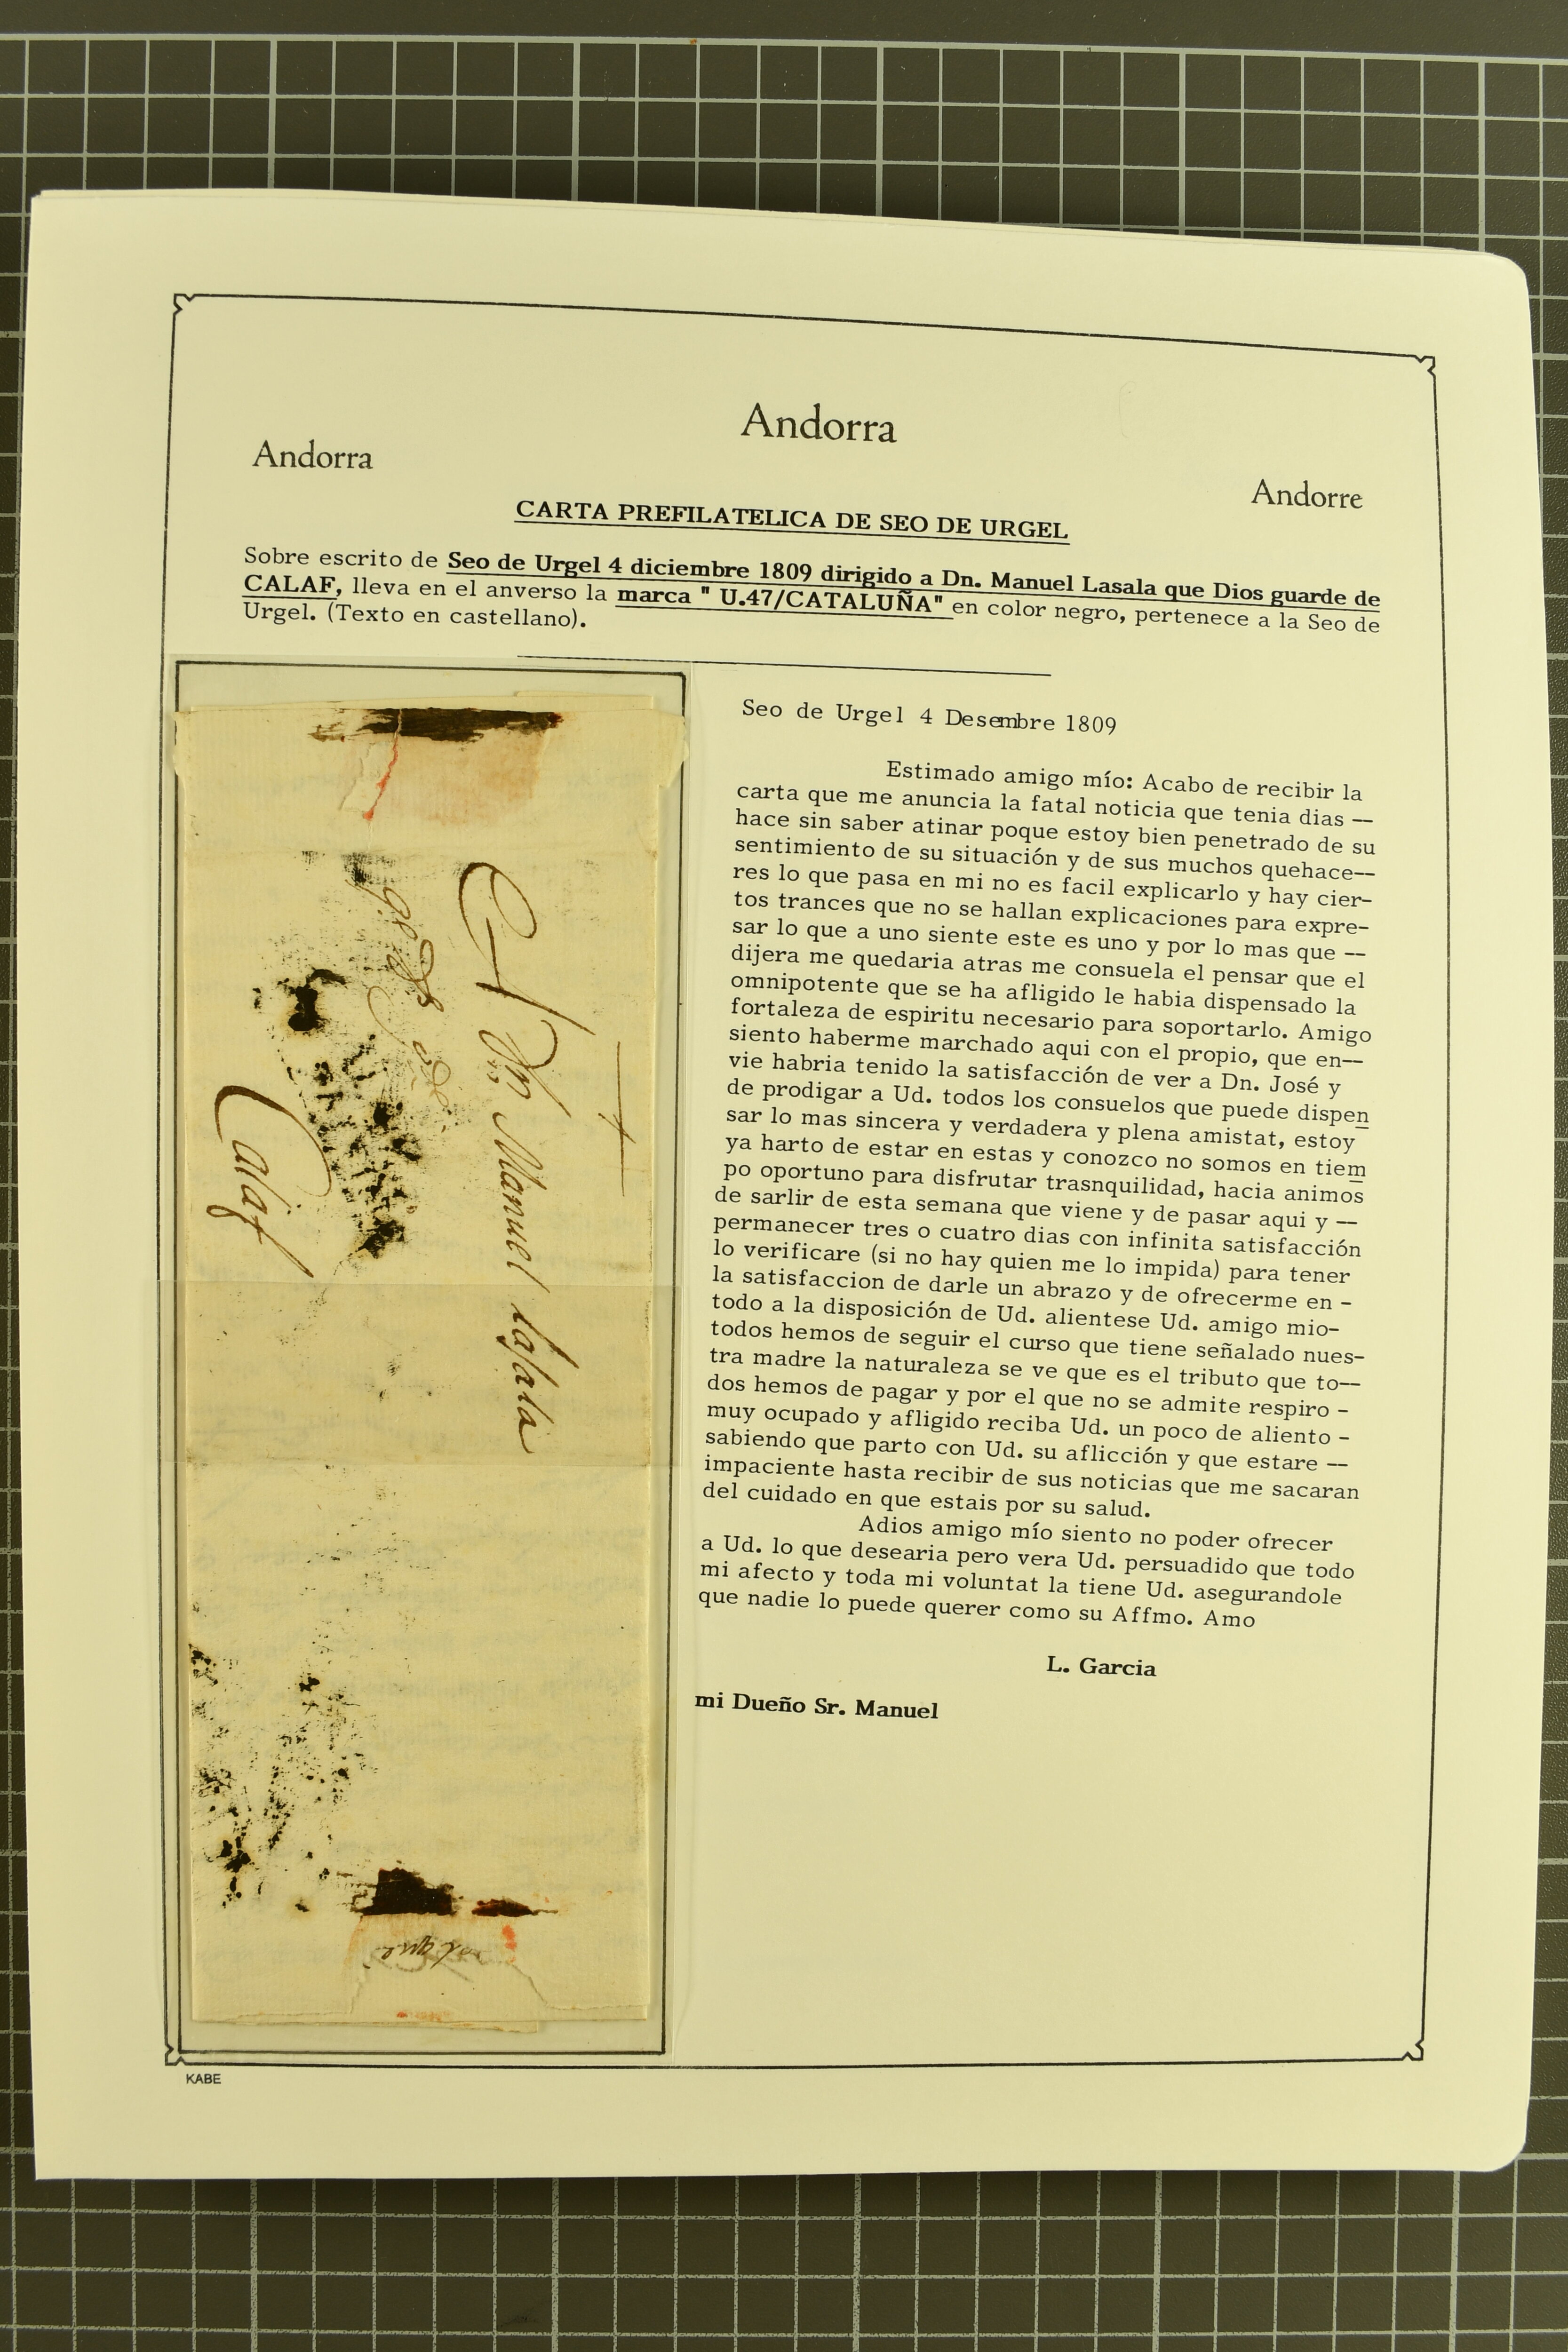 Andorra
Andorra
Andorre
CARTA PREFILATELICA DE SEO DE URGEL
Sobre escrito de Seo de Urgel 4 diciembre 1809 dirigido a Dn. Manuel Lasala que Dios guarde de
CALAF, lleva en el anverso la marca " U.47/CATALUÑA" en color negro, pertenece a la Seo de
Urgel. (Texto en castellano).
A Dn Manuel Lasala
Calaf
que
Seo de Urgel 4 Desembre 1809
Estimado amigo mío: Acabo de recibir la
carta que me anuncia la fatal noticia que tenia dias --
hace sin saber atinar poque estoy bien penetrado de su
sentimiento de su situación y de sus muchos quehace--
res lo que pasa en mi no es facil explicarlo y hay cier-
tos trances que no se hallan explicaciones para expre-
sar lo que a uno siente este es uno y por lo mas que --
dijera me quedaria atras me consuela el pensar que el
omnipotente que se ha afligido le habia dispensado la
fortaleza de espiritu necesario para soportarlo. Amigo
siento haberme marchado aqui con el propio, que en--
vie habria tenido la satisfacción de ver a Dn. José y
de prodigar a Ud. todos los consuelos que puede dispen
sar lo mas sincera y verdadera y plena amistat, estoy
ya harto de estar en estas y conozco no somos en tiem
po oportuno para disfrutar trasnquilidad, hacia animos
de sarlir de esta semana que viene y de pasar aqui y --
permanecer tres o cuatro dias con infinita satisfacción
lo verificare (si no hay quien me lo impida) para tener
la satisfaccion de darle un abrazo y de ofrecerme en -
todo a la disposición de Ud. alientese Ud. amigo mio-
todos hemos de seguir el curso que tiene señalado nues-
tra madre la naturaleza se ve que es el tributo que to--
dos hemos de pagar y por el que no se admite respiro -
muy ocupado y afligido reciba Ud. un poco de aliento -
sabiendo que parto con Ud. su aflicción y que estare --
impaciente hasta recibir de sus noticias que me sacaran
del cuidado en que estais por su salud.
Adios amigo mío siento no poder ofrecer
a Ud. lo que desearia pero vera Ud. persuadido que todo
mi afecto y toda mi voluntat la tiene Ud. asegurandole
que nadie lo puede querer como su Affmo. Amo
L. Garcia
mi Dueño Sr. Manuel
KABE